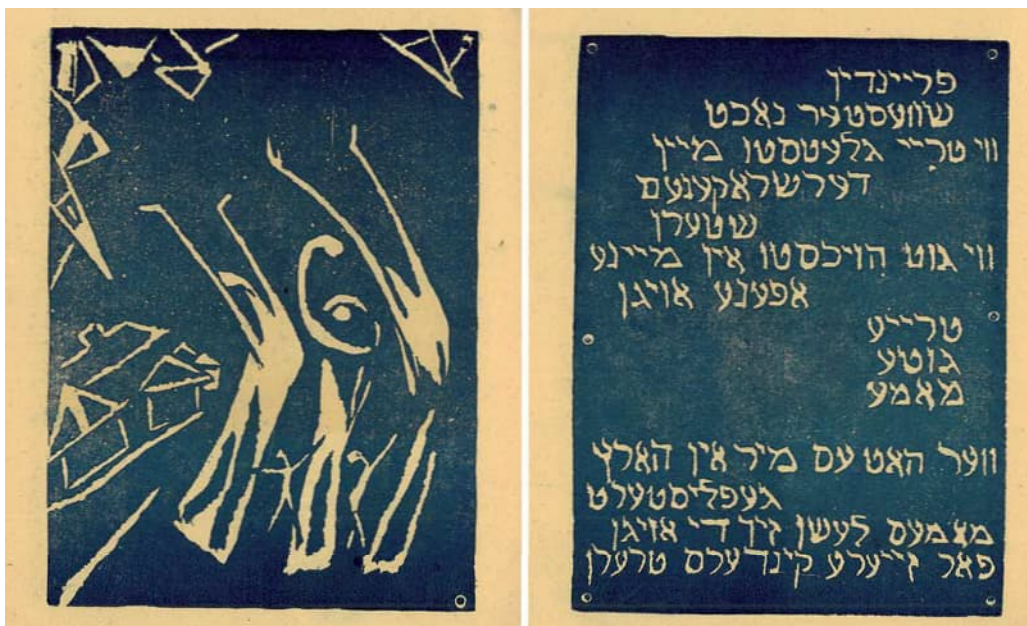 פריינדין
שוועסטער נאכט
ווי טריי גלעטסטו מיין
דערשראקענעם
שטערן
ווי גוט הויכסטו אין מיינע
אפענע אויגן
טרייע
גוטע
מאמע
ווער האט עס מיר אין הארץ
געפליסטערט
מאמעס לעשן זיך די אויגן
פאר זייערע קינדערס טרערן